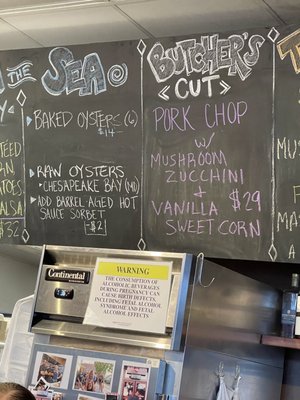 THE SEA
BAKED OYSTERS (6)
$14
RAW OYSTERS
CHESAPEAKE BAY (MD)
ADD BARREL AGED HOT
SAUCE SORBET
-$2
BUTCHER'S
CUT
PORK CHOP
W/
MUSHROOM
ZUCCHINI
+
VANILLA
SWEET CORN
$29
Continental
WARNING
THE CONSUMPTION OF
ALCOHOLIC BEVERAGES
DURING PREGNANCY CAN
CAUSE BIRTH DEFECTS
INCLUDING FETAL ALCOHOL
SYNDROME AND
FETAL ALCOHOL